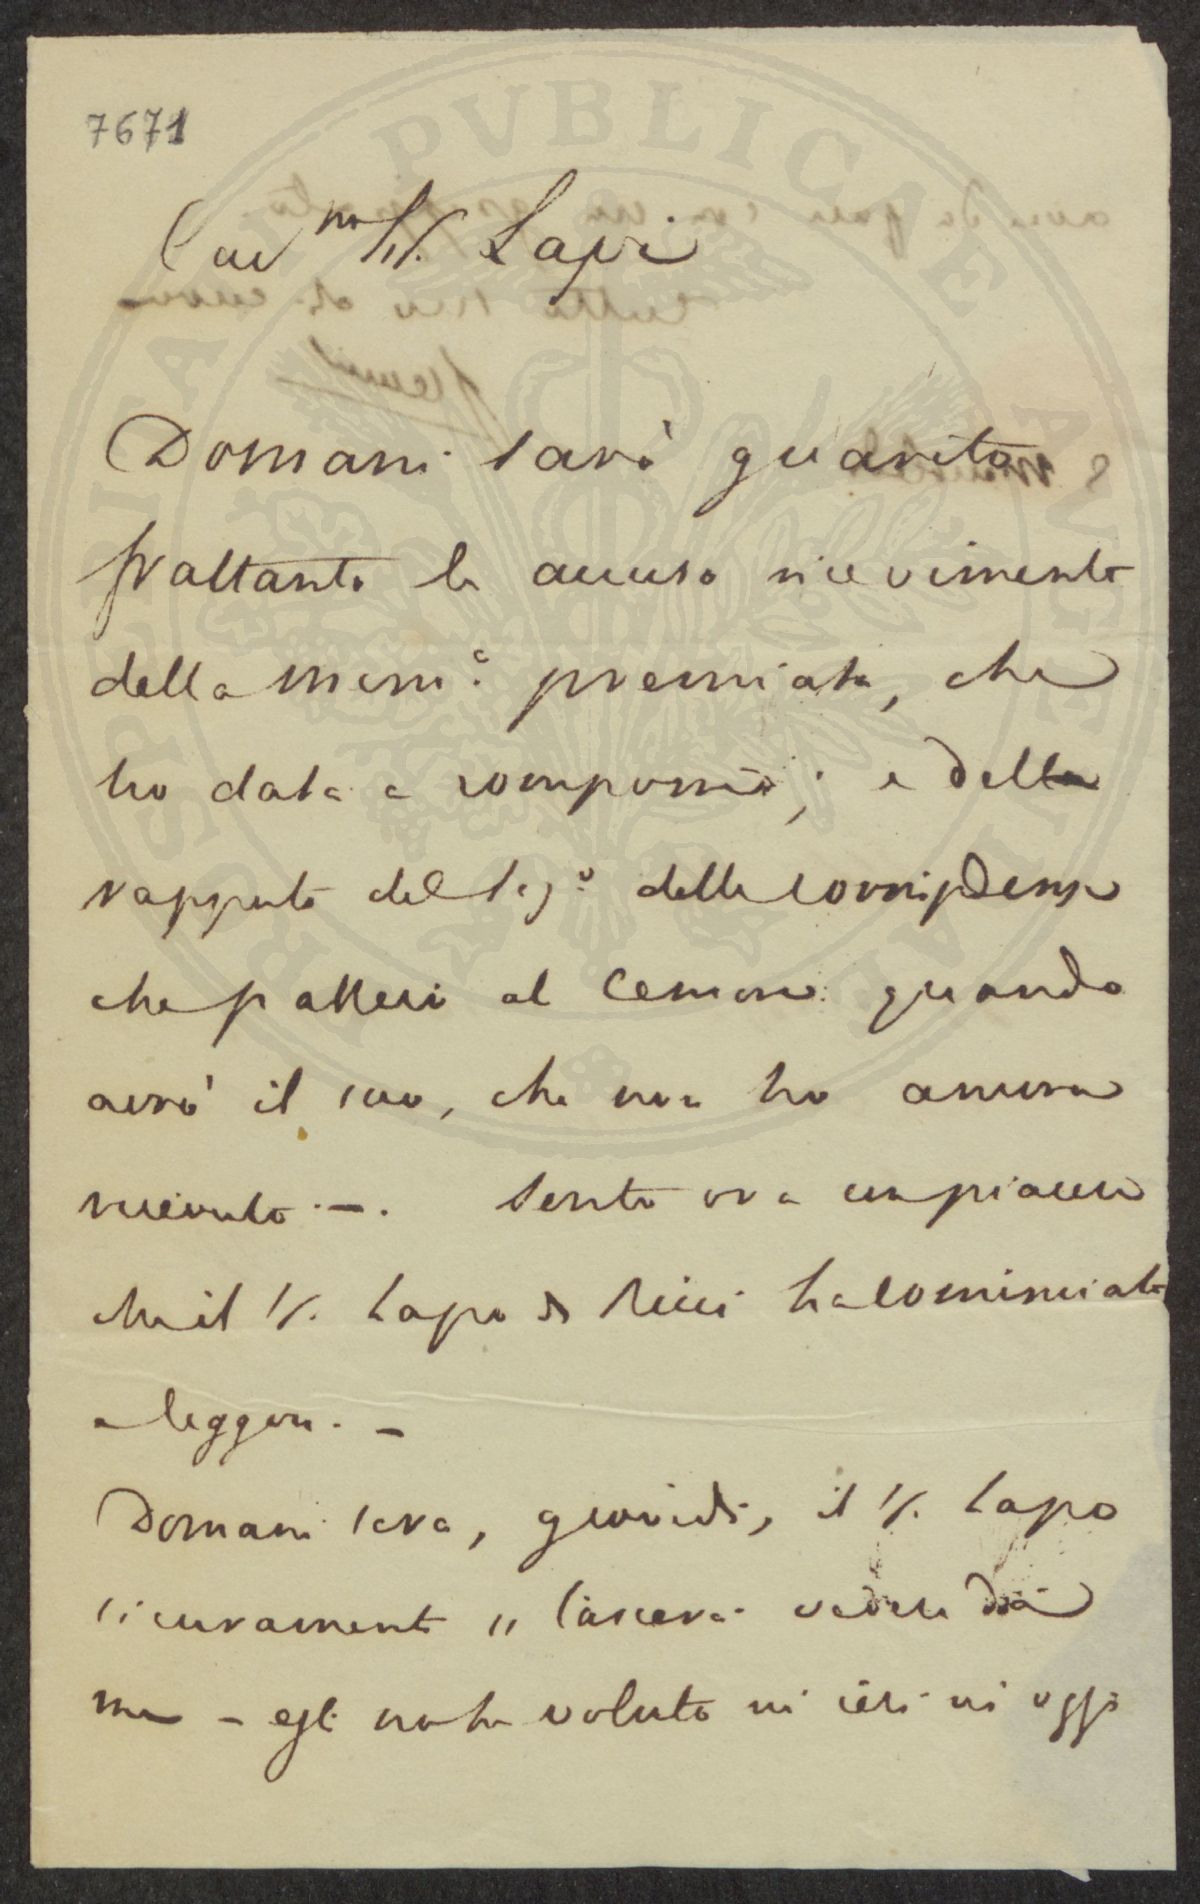 7671
Car.mo Sr. Lapi
Domani sarò guarito
frattanto le accuso ricevimento
della Mem.a premiata, che
ho data a comporre; e della
rapporto del Seg.o delle corrispdenze
che passerò al Censore quando
avrò il suo, che non ho ancora
ricevuto. —. Sento ora con piacere
che il Sr. Lapo de Ricci ha cominciato
a leggere. —
Domani sera, giovedì, il Sr. Lapo
sicuramente si lascerà vedere da
me — egli non ha voluto nì ieri nì oggi
PVBLICAE